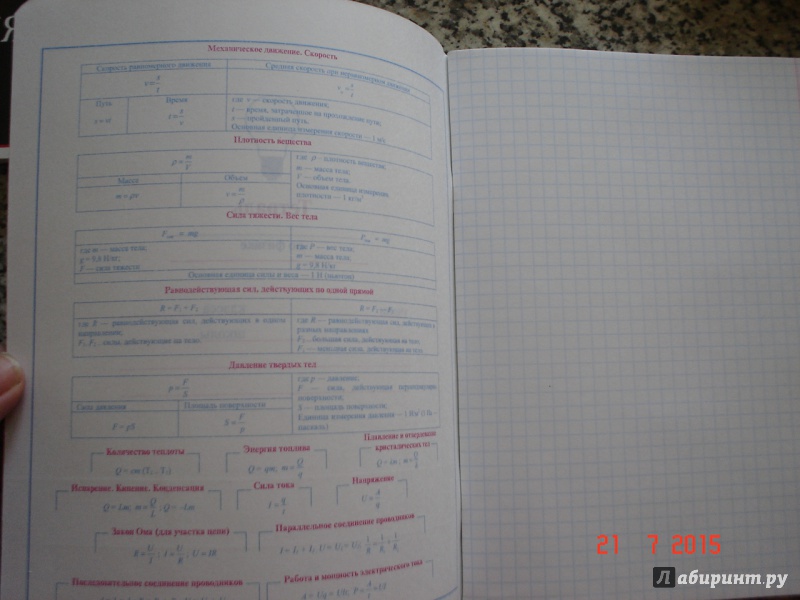 Механическое движение. Скорость
Скорость равномерного движения
Средняя скорость при неравномерном движении
v = s/t
Путь
Время
s = vt
t = s/v
где v — скорость движения;
t — время, затраченное на прохождение пути;
s — пройденный путь.
Основная единица измерения скорости — 1 м/с
Плотность вещества
ρ = m/V
где ρ — плотность вещества;
m — масса тела;
V — объем тела.
Основная единица измерения
плотности — 1 кг/м³
Масса
Объем
m = ρv
v = m/ρ
Сила тяжести. Вес тела
где m — масса тела;
g = 9,8 Н/кг;
F — сила тяжести
где P — вес тела;
m — масса тела;
g = 9,8 Н/кг
Основная единица силы и веса — 1 Н (ньютон)
Равнодействующая сил, действующих по одной прямой
R = F₁ + F₂
где R — равнодействующая сил, действующих в одном
направлении;
F₁, F₂ – силы, действующие на тело.
где R — равнодействующая сил, действующих в
разных направлениях
Давление твердых тел
p = F/S
где p — давление;
F — сила, действующая перпендикулярно
поверхности;
S — площадь поверхности
Единица измерения давления — 1 Н/м² (1 Па –
паскаль)
Сила давления
Площадь поверхности
F = pS
S = F/p
Количество теплоты
Энергия топлива
Плавление и отвердевание
кристаллических тел
Q = qm; m = Q/q
Испарение. Кипение. Конденсация
Сила тока
Напряжение
Q = Lm; m = Q/L; Q = -Lm
I = q/t
U = A/q
Закон Ома (для участка цепи)
Параллельное соединение проводников
R = U/I; I = U/R; U = IR
Последовательное соединение проводников
Работа и мощность электрического тока
21 7 2015
Лабиринт.ру